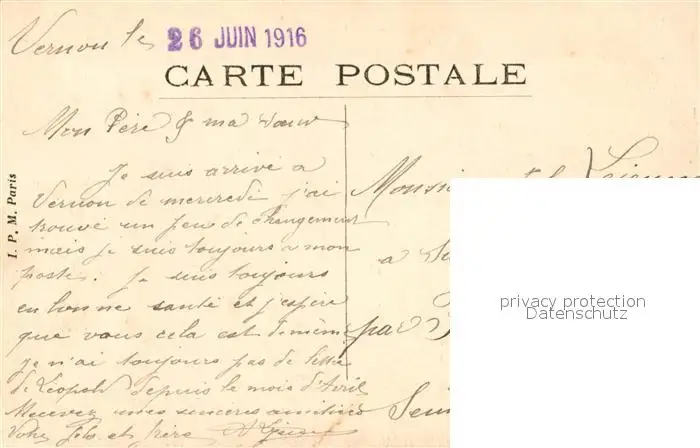 Vernon le 26 JUIN 1916
CARTE POSTALE
Mon Père & ma sœur
Je suis arrivé a
Vernon de mercredi j'ai
trouvé un peu de changement
mais je suis toujours a mon
poste. Je suis toujours
en bonne santé et j'espère
que vous cela est de même
je n'ai toujours pas de lettre
de Léopold depuis le mois d'Avril
Recevez mes sincères amitiés
Votre fils et frère
I. P. M. Paris
Monsieur
a
par
privacy protection
Datenschutz